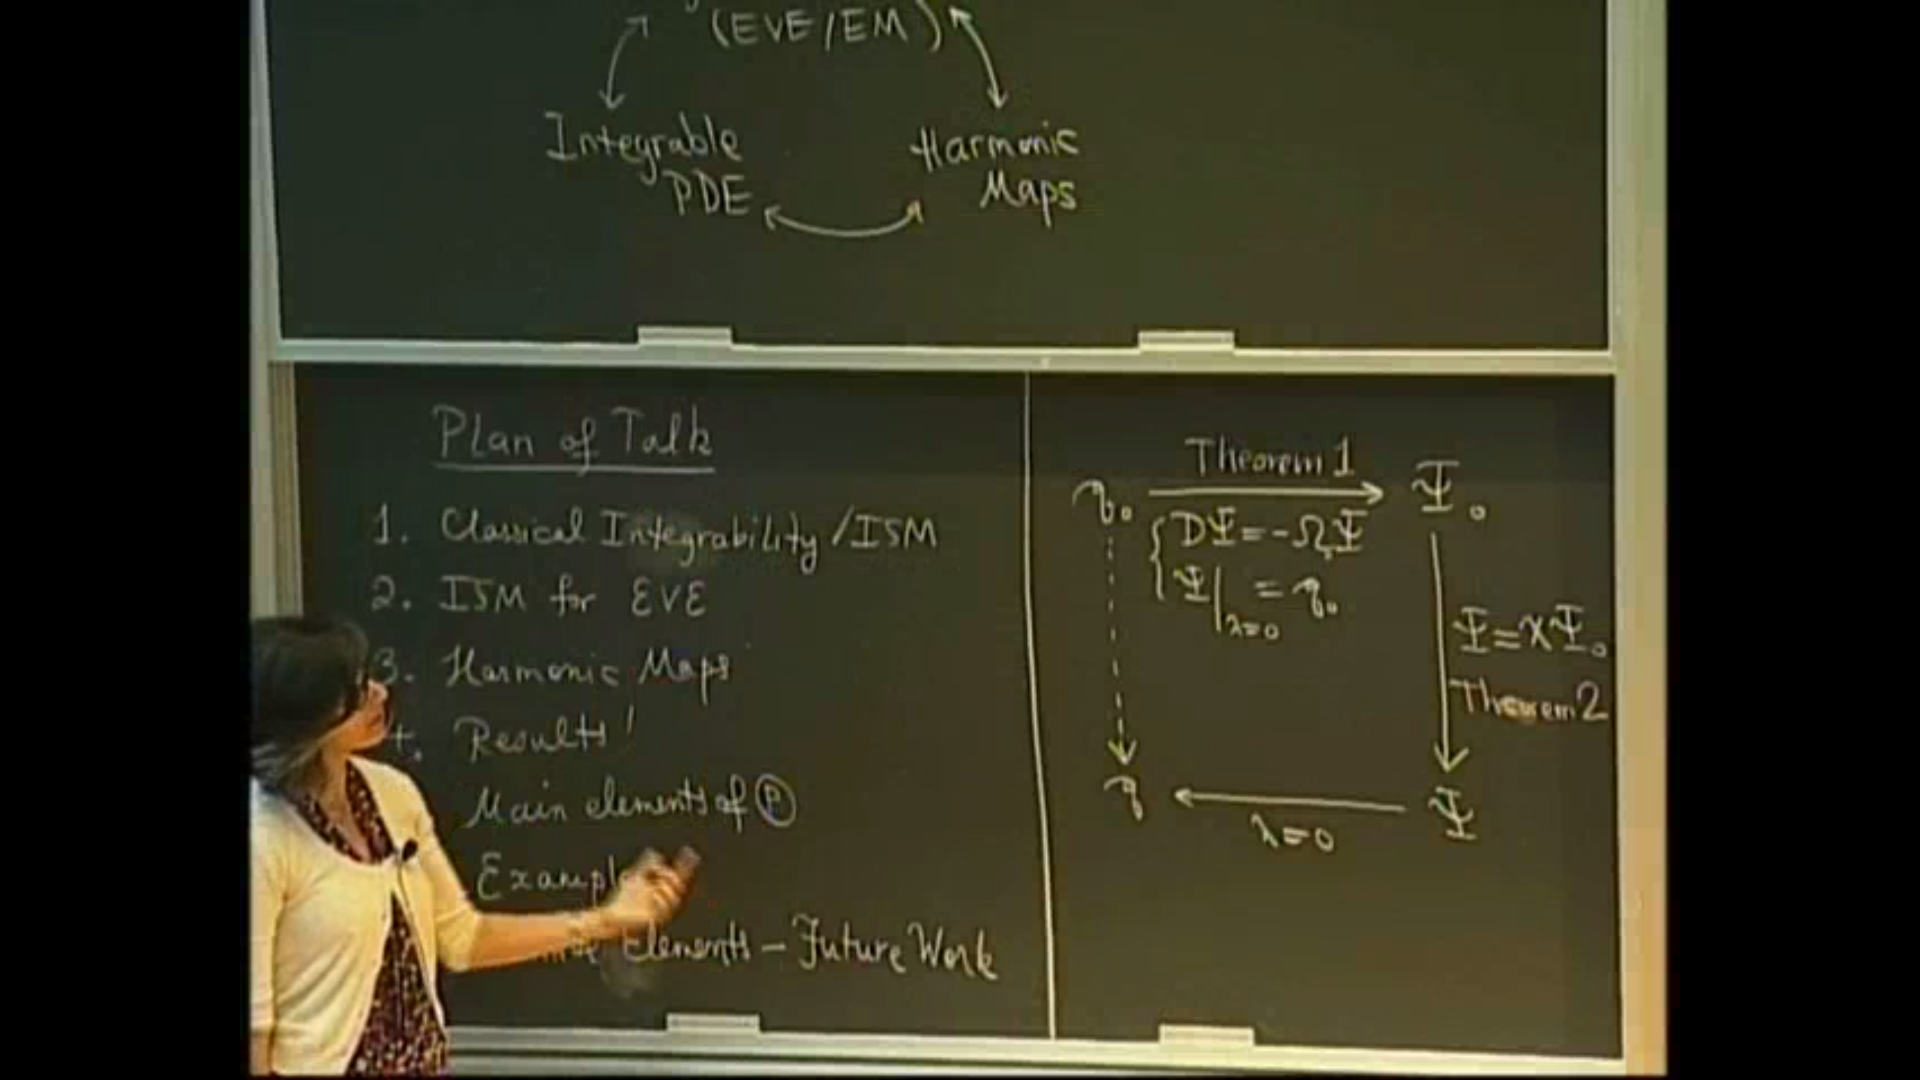 (EVE/EM)
Integrable PDE
Harmonic Maps
Plan of Talk
1. Classical Integrability/ISM
2. ISM for EVE
3. Harmonic Maps
Results!
Main elements of Ⓟ
Example
Elements – Future Work
Theorem 1
q₀ → Ψ₀
DΨ = -Ω₀Ψ
Ψ|λ=0 = q₀
Ψ = χΨ₀
Theorem 2
q ← Ψ
λ=0